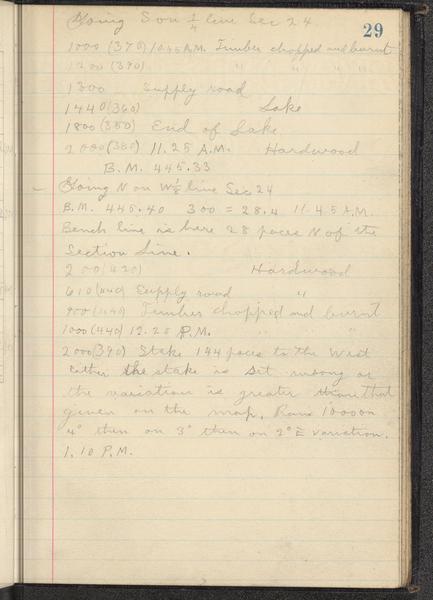 29
Going S on 1/4 line Sec 24.
1000 (370) 10.45 A.M. Timber chopped and burnt
1200 (390) " " " "
1300 Supply road
1440 (360) Lake
1800 (350) End of Lake
2000 (380) 11.25 A.M. Hardwood
B.M. 445.33
Going N on W 1/8 line Sec 24
B.M. 445.40 300 = 28.4 11.45 A.M.
Bench line is here 28 paces N of the
Section Line.
200 (420) Hardwood
610 (440) Supply road "
900 (440) Timber chopped and burnt
1000 (440) 12.20 P.M. " "
2000 (390) Stake 144 paces to the West
Either the stake is set wrong or
the variation is greater than that
given on the map. Ran 1000 on
4° then on 3° then on 2° E variation.
1.10 P.M.